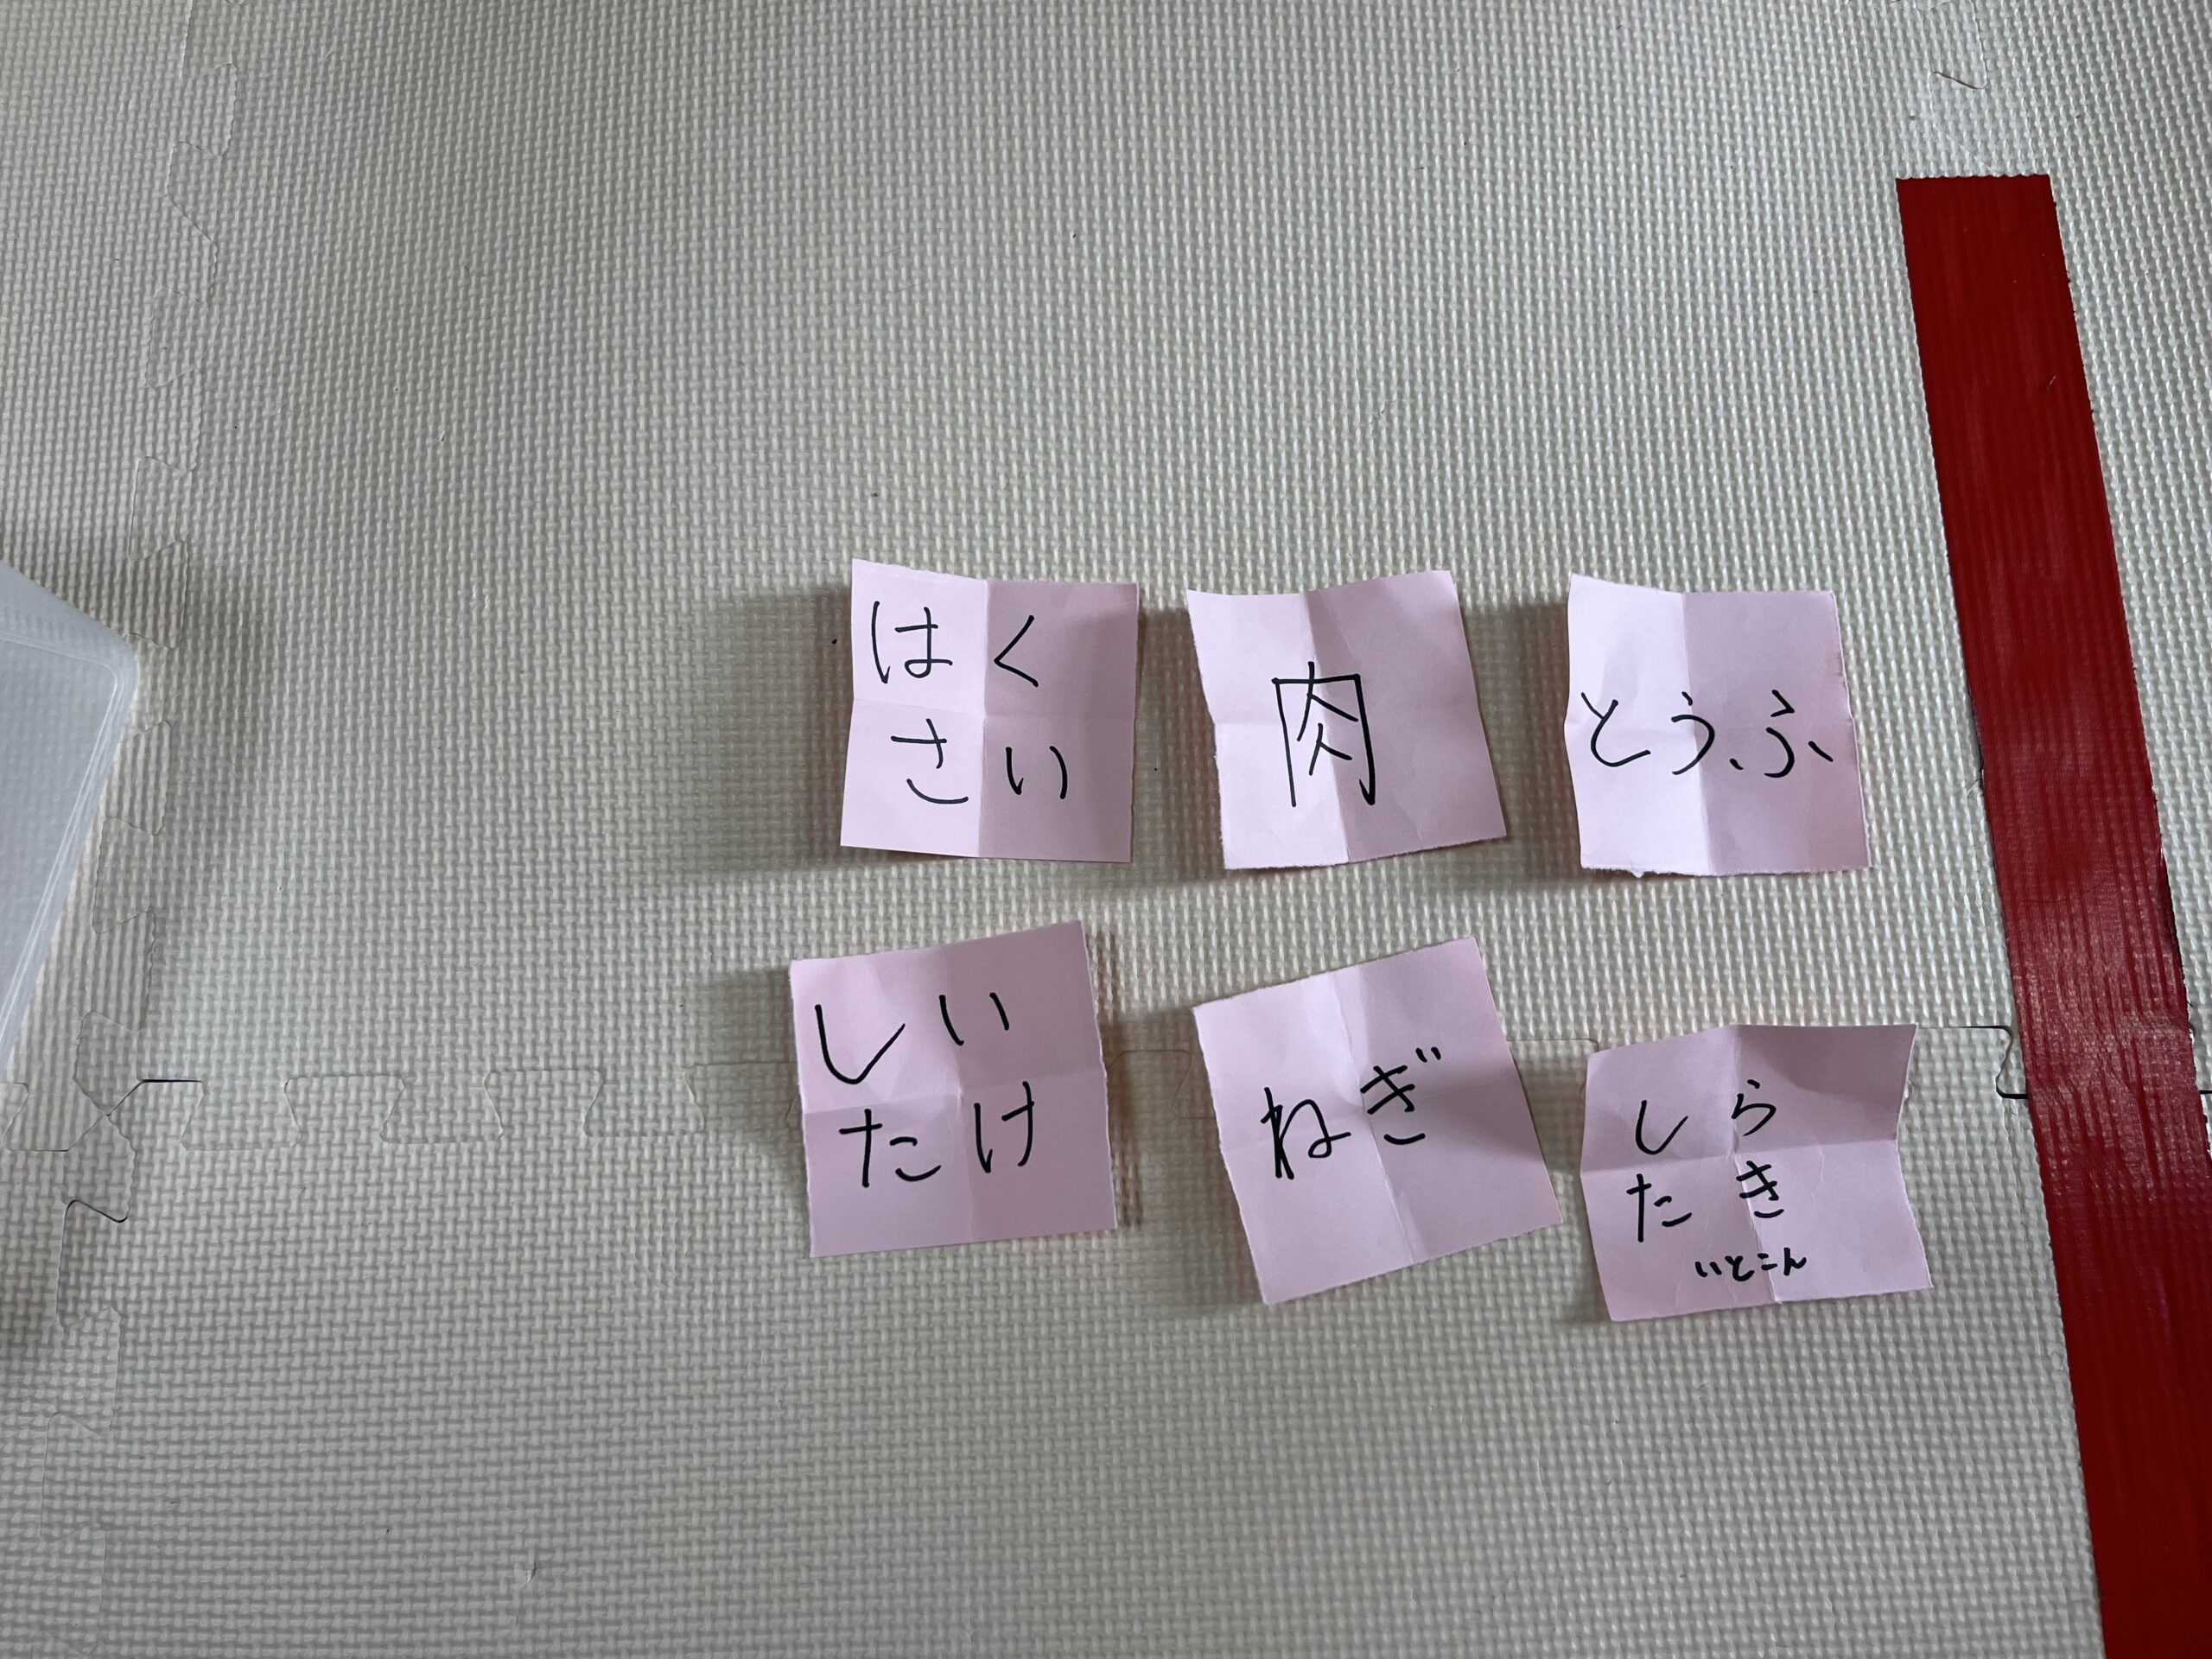 はく
さい
肉
とうふ
しい
たけ
ねぎ
しら
たき
いとこん